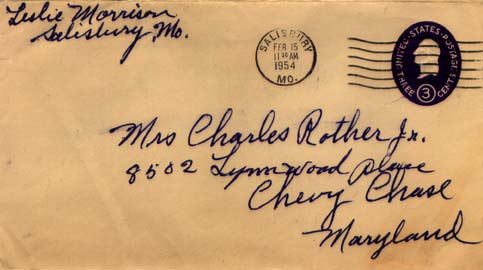 Leslie Morrison
Salisbury, Mo.
SALISBURY
FEB 15
11 30 AM
1954
MO.
UNITED·STATES·POSTAGE
THREE 3 CENTS
Mrs Charles Rother Jr.
8502 Lynnwood place
Chevy Chase
Maryland